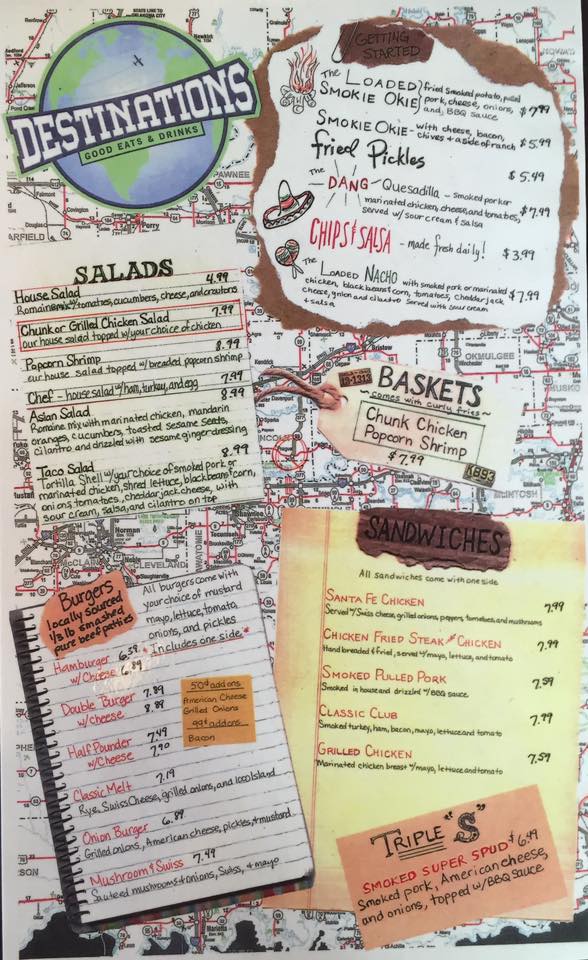 DESTINATIONS
GOOD EATS & DRINKS
GETTING
STARTED
The LOADED
SMOKIE OKIE
fried smoked potato, pulled
pork, cheese, onions,
and BBQ sauce
$7.99
SMOKIE OKIE - with cheese, bacon,
chives & a side of ranch
$5.99
fried Pickles
$5.49
The DANG Quesadilla - smoked pork or
marinated chicken, cheese, and tomatoes,
served w/ sour cream & salsa
$7.99
CHIPS & SALSA - made fresh daily!
$3.99
The LOADED NACHO with smoked pork or marinated
chicken, black beans & corn, tomatoes, cheddar jack
cheese, onion and cilantro served with sour cream
& salsa
$7.99
SALADS
House Salad 4.99
Romaine mix w/ tomatoes, cucumbers, cheese, and croutons
Chunk or Grilled Chicken Salad 7.99
our house salad topped w/ your choice of chicken
Popcorn Shrimp 8.99
our house salad topped w/ breaded popcorn shrimp
Chef - house salad w/ ham, turkey, and egg 7.99
Asian Salad 8.99
Romaine mix with marinated chicken, mandarin
oranges, cucumbers, toasted sesame seeds,
cilantro and drizzled with sesame ginger dressing
Taco Salad 8.99
Tortilla Shell w/ your choice of smoked pork or
marinated chicken, shred lettuce, black beans & corn,
onions, tomatoes, cheddar jack cheese, with
sour cream, salsa, and cilantro on top
BASKETS
~comes with curly fries~
Chunk Chicken
Popcorn Shrimp
$7.99
K893
SANDWICHES
All sandwiches come with one side
SANTA FE CHICKEN 7.99
Served w/ Swiss cheese, grilled onions, peppers, tomatoes, and mushrooms
CHICKEN FRIED STEAK or CHICKEN 7.99
Hand breaded & fried, served w/ mayo, lettuce, and tomato
SMOKED PULLED PORK 7.59
Smoked in house and drizzled w/ BBQ sauce
CLASSIC CLUB 7.99
Smoked turkey, ham, bacon, mayo, lettuce, and tomato
GRILLED CHICKEN 7.59
Marinated chicken breast w/ mayo, lettuce and tomato
Burgers
locally sourced
1/3 lb smashed
pure beef patties
All burgers come with
your choice of mustard
mayo, lettuce, tomato,
onions, and pickles
*Includes one side.*
Hamburger 6.59
w/ Cheese 6.89
Double Burger 7.89
w/ cheese 8.89
Half Pounder 7.49
w/ Cheese 7.90
50¢ add ons
American Cheese
Grilled Onions
99¢ add ons
Bacon
Classic Melt 7.19
Rye, Swiss Cheese, grilled onions, and 1000 Island
Onion Burger 6.89
Grilled onions, American cheese, pickles, & mustard
Mushroom & Swiss 7.49
Sauteed mushrooms & onions, Swiss, & mayo
TRIPLE "S"
SMOKED SUPER SPUD $6.49
Smoked pork, American cheese,
and onions, topped w/ BBQ sauce,
PAWNEE
Perry
Norman
CLEVELAND
OKMULGEE